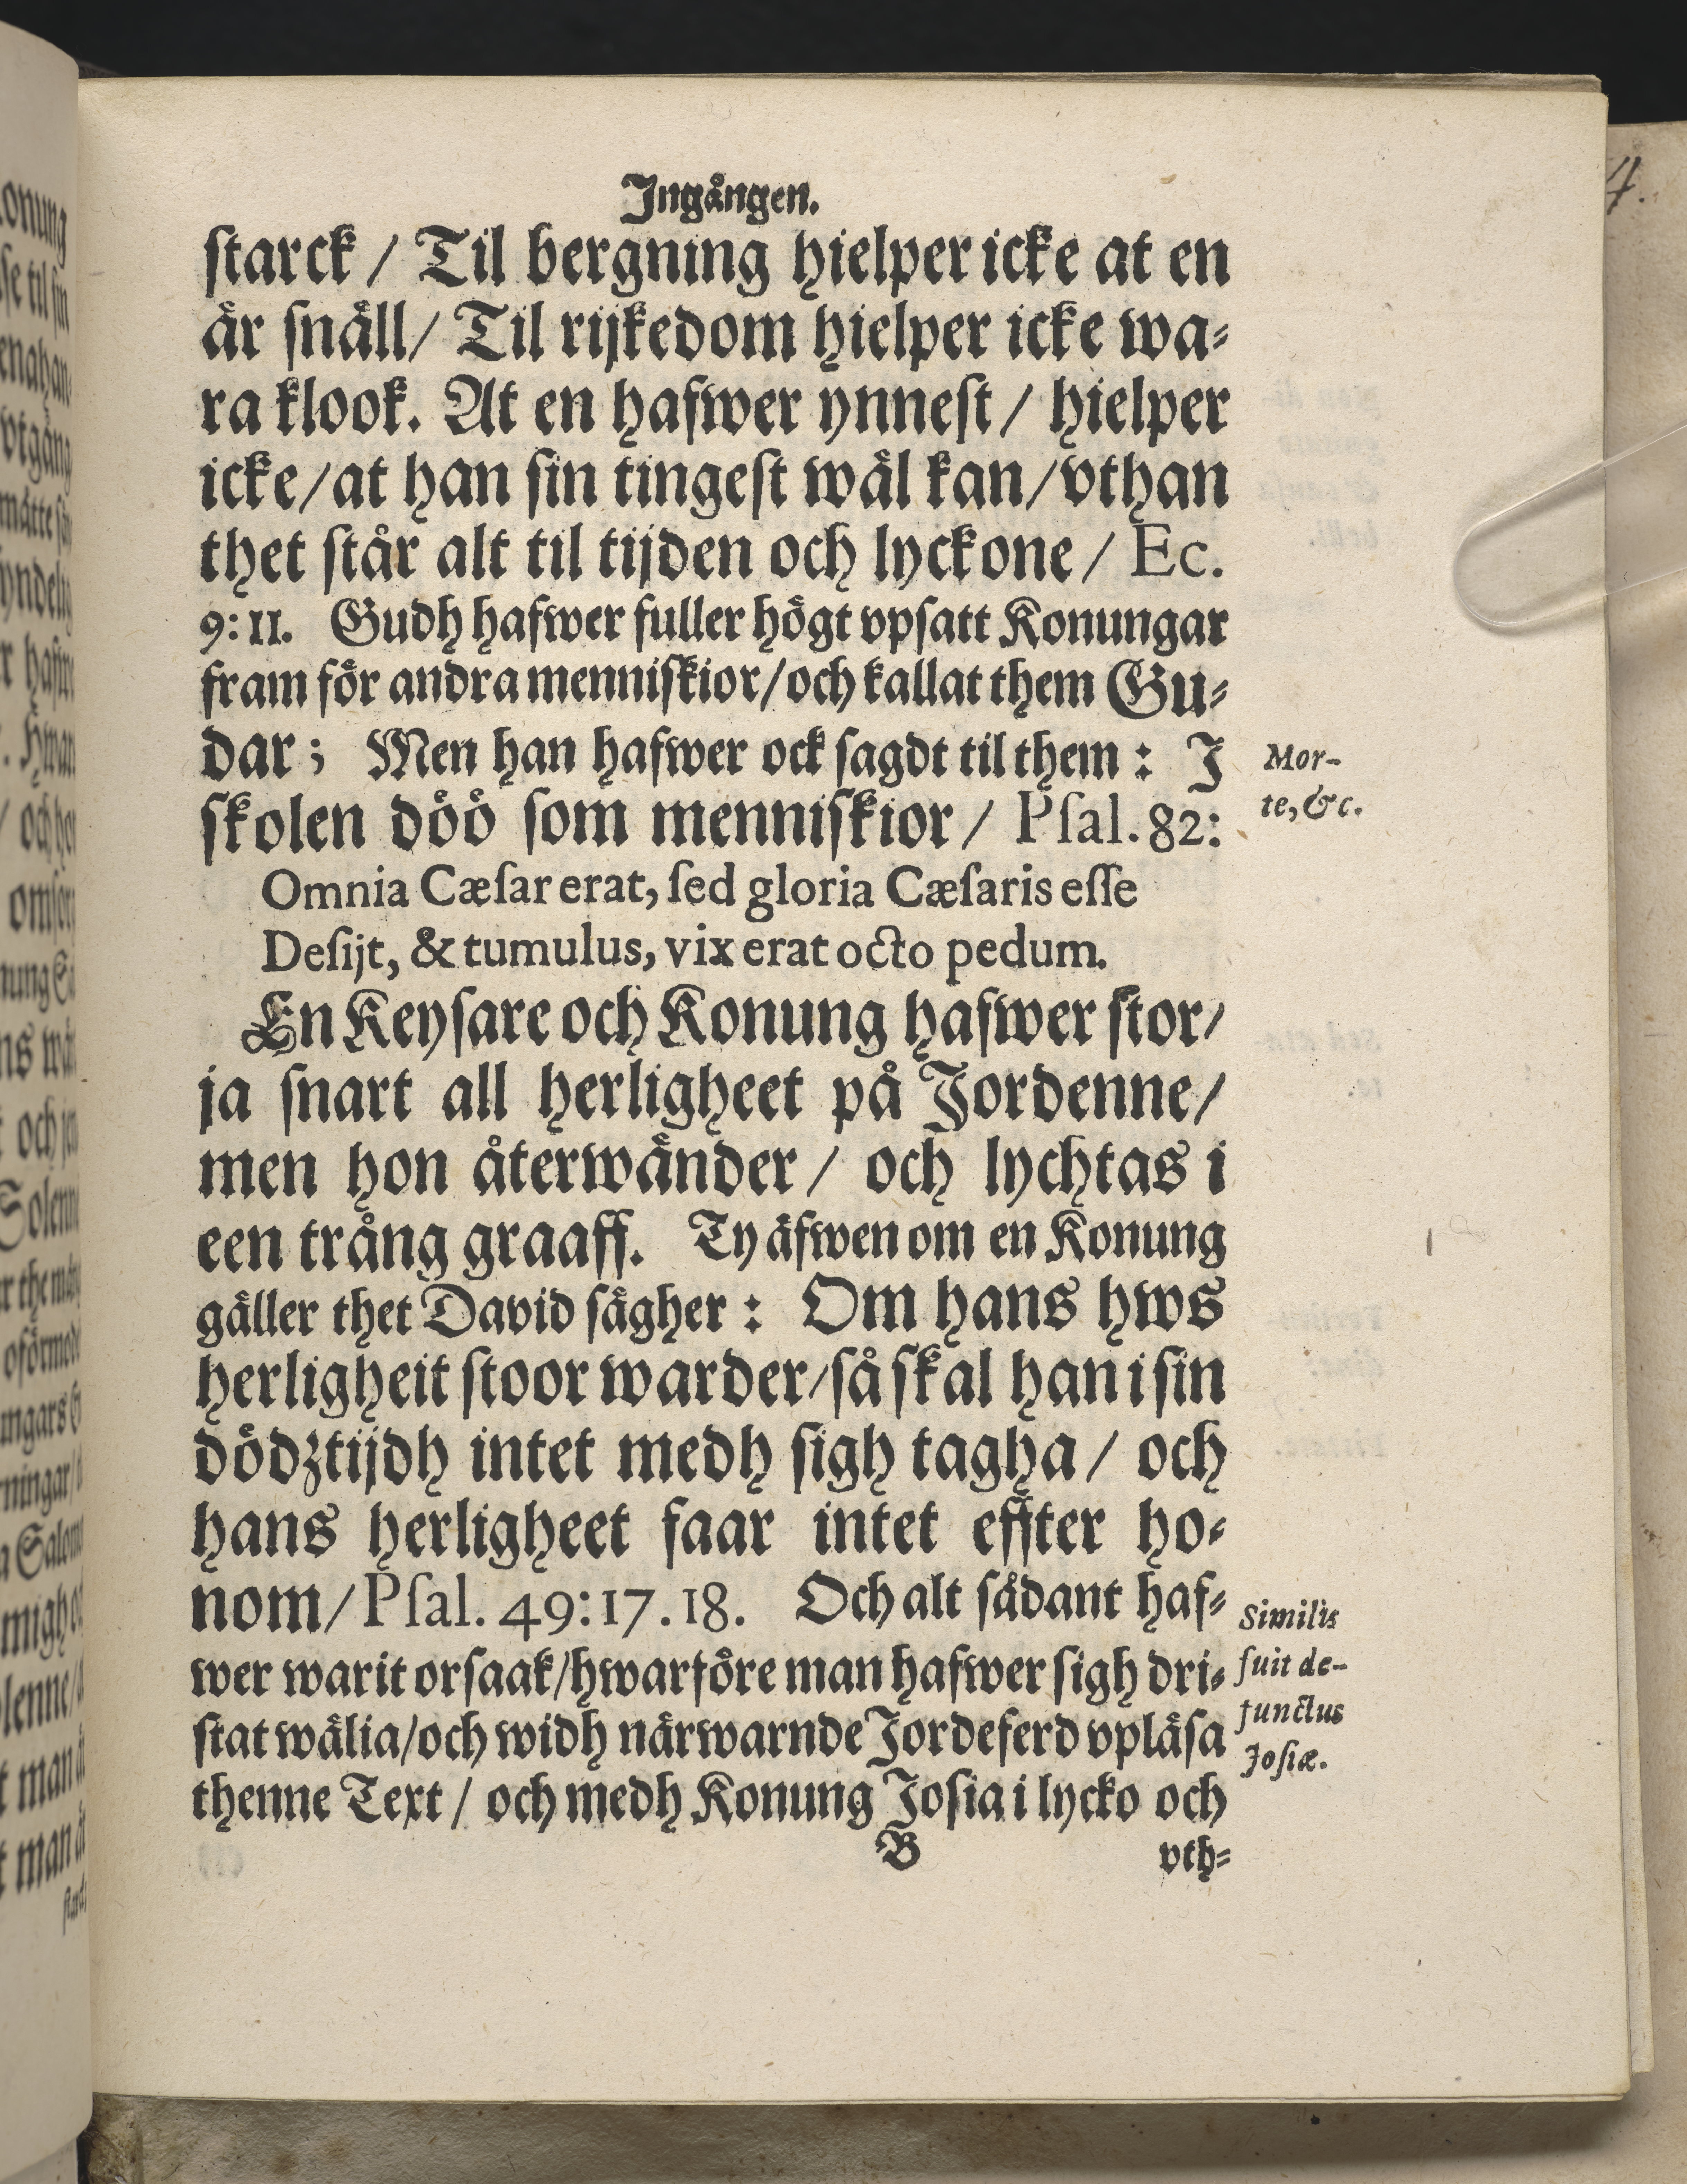 Ingången.
starck / Til bergning hielper icke at en
är snäll / Til rijkedom hielper icke wa-
ra klook. At en hafwer ynnest / hielper
icke / at han sin tingest wäl kan / vthan
thet står alt til tijden och lyckone / Ec.
9:11. Gudh hafwer fuller högt vpsatt Konungar
fram för andra menniskior / och kallat them Gu-
dar; Men han hafwer ock sagdt til them: I
skolen döö som menniskior / Psal. 82:
Mor-
te, &c.
Omnia Cæsar erat, sed gloria Cæsaris esse
Desijt, & tumulus, vix erat octo pedum.
En Keysare och Konung hafwer stor /
ja snart all herligheet på Jordenne /
men hon återwänder / och lychtas i
een trång graaff. Ty äfwen om en Konung
gäller thet David sägher: Om hans hws
herligheit stoor warder / så skal han i sin
dödztijdh intet medh sigh tagha / och
hans herligheet faar intet effter ho-
nom / Psal. 49:17.18. Och alt sådant haf-
wer warit orsaak / hwarföre man hafwer sigh dri-
stat wälia / och widh närwarnde Jordeferd vpläsa
thenne Text / och medh Konung Josia i lycko och
Similis
fuit de-
functus
Josiæ.
B vth-
4.